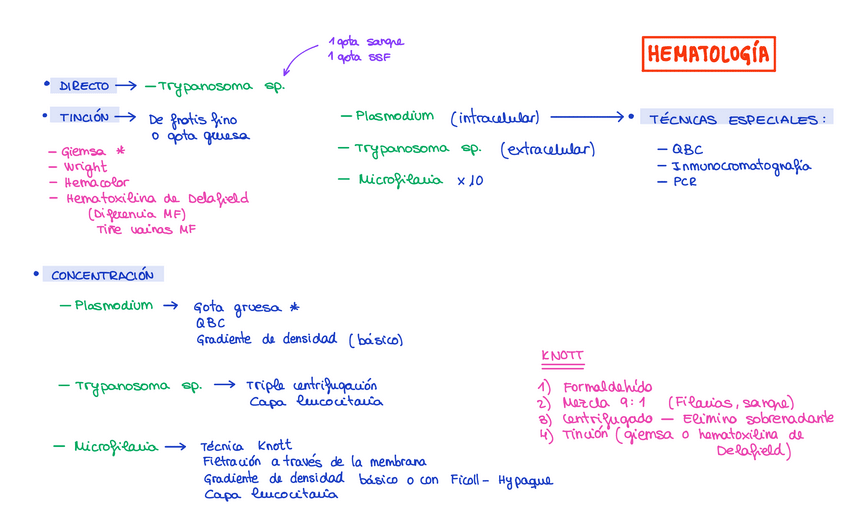 HEMATOLOGÍA
1 gota sangre
1 gota SSF
• DIRECTO → – Trypanosoma sp.
• TINCIÓN → De frotis fino
o gota gruesa
– Giemsa *
– Wright
– Hemacolor
– Hematoxilina de Delafield
(Diferencia MF)
Tiñe vainas MF
– Plasmodium (intracelular) →
– Trypanosoma sp. (extracelular)
– Microfilaria x10
• TÉCNICAS ESPECIALES:
– QBC
– Inmunocromatografía
– PCR
• CONCENTRACIÓN
– Plasmodium → Gota gruesa *
QBC
Gradiente de densidad (básico)
– Trypanosoma sp. → Triple centrifugación
Capa leucocitaria
– Microfilaria → Técnica Knott
Filtración a través de la membrana
Gradiente de densidad básico o con Ficoll-Hypaque
Capa leucocitaria
KNOTT
1) Formaldehído
2) Mezcla 9:1 (Filarias, sangre)
3) Centrifugado – Elimino sobrenadante
4) Tinción (giemsa o hematoxilina de
Delafield)